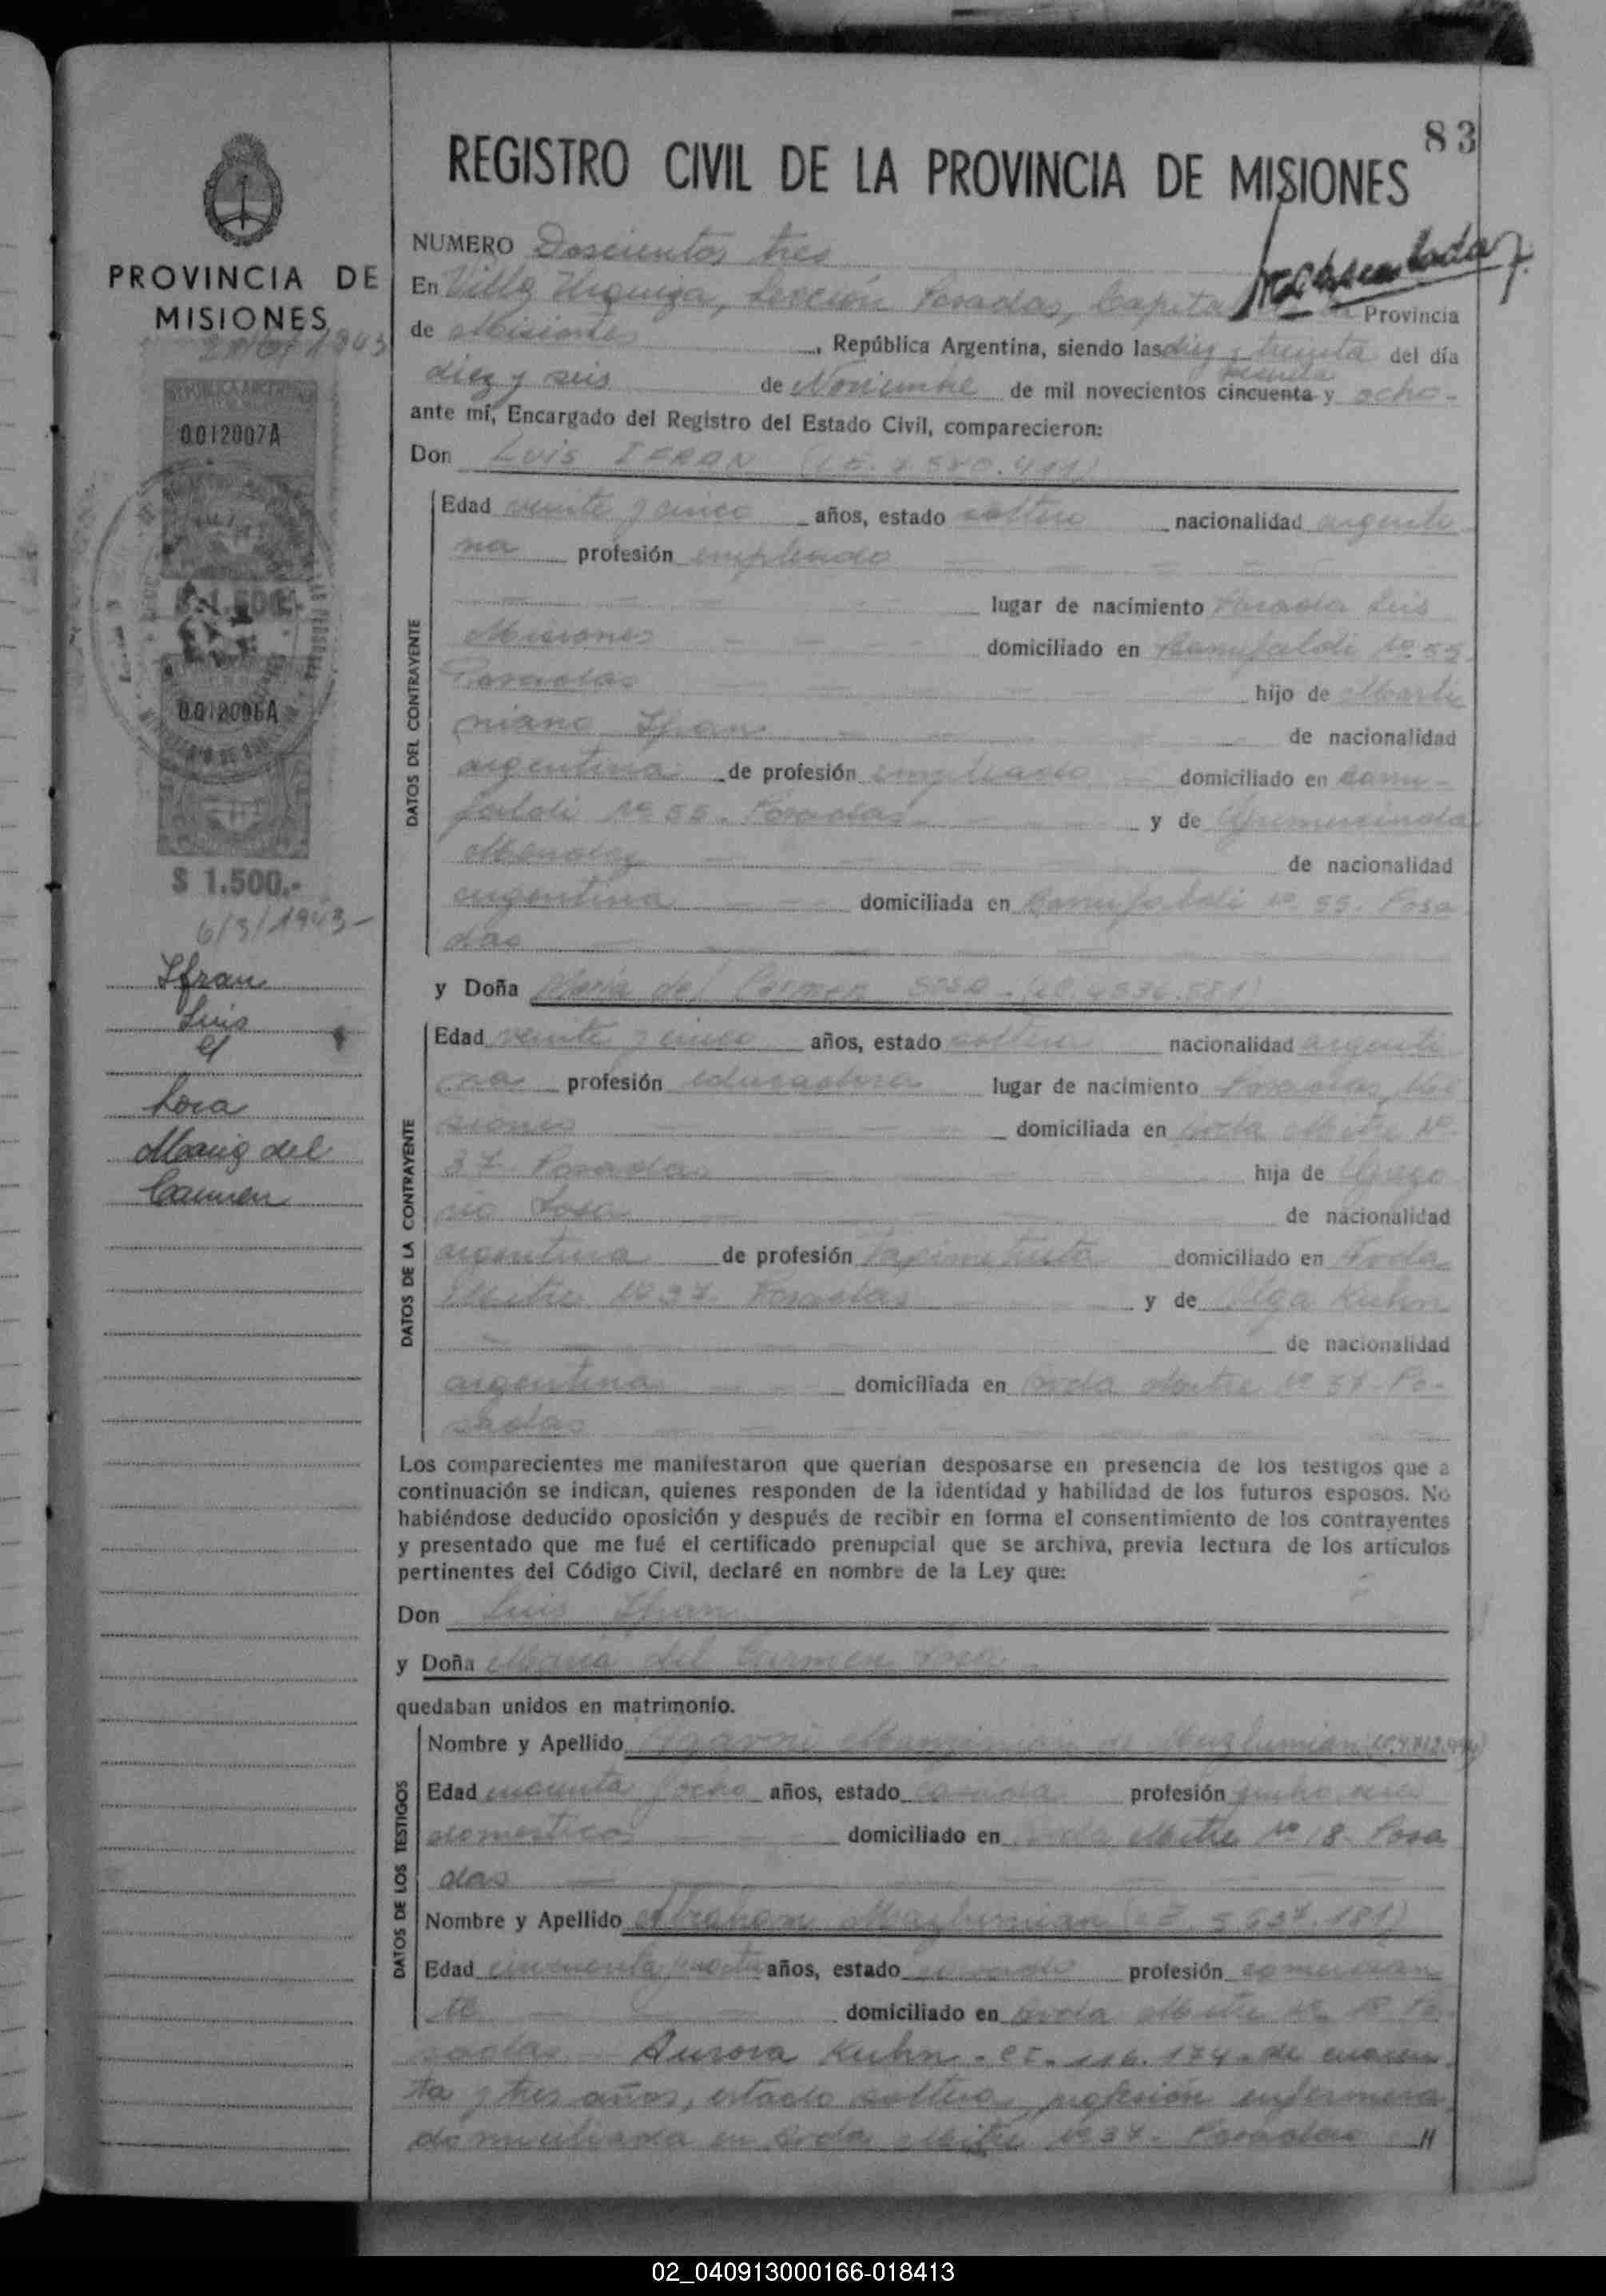 83
REGISTRO CIVIL DE LA PROVINCIA DE MISIONES
PROVINCIA DE
MISIONES
NUMERO Doscientos tres
En Villa Urquiza, Sección Posadas, Capital Provincia
de Misiones, República Argentina, siendo las diez y treinta del día
sesenta
diez y seis de Noviembre de mil novecientos cincuenta y ocho
ante mí, Encargado del Registro del Estado Civil, comparecieron:
Don Luis IFRAN
0012007A
$ 1.500.-
0012006A
$ 1.500.-
6/3/1943
Ifran
Luis
y
Sosa
Maria del
Carmen
DATOS DEL CONTRAYENTE
Edad veinte y cinco años, estado soltero nacionalidad argenti
na profesión empleado
lugar de nacimiento
Misiones domiciliado en Nº 55
Posadas hijo de Marti
niano Ifran de nacionalidad
argentina de profesión empleado domiciliado en
Nº 55. Posadas y de
Mendez de nacionalidad
argentina domiciliada en Nº 55. Posa
das
y Doña Maria del Carmen SOSA
DATOS DE LA CONTRAYENTE
Edad veinte y cinco años, estado soltera nacionalidad argenti
na profesión educadora lugar de nacimiento Posadas, Mi
siones domiciliada en Avda Mitre Nº
37 Posadas hija de Grego
rio Sosa de nacionalidad
argentina de profesión domiciliado en Avda
Mitre Nº 37 Posadas y de Olga Kuhn
de nacionalidad
argentina domiciliada en Avda Mitre Nº 37 - Po-
sadas
Los comparecientes me manifestaron que querían desposarse en presencia de los testigos que a
continuación se indican, quienes responden de la identidad y habilidad de los futuros esposos. No
habiéndose deducido oposición y después de recibir en forma el consentimiento de los contrayentes
y presentado que me fué el certificado prenupcial que se archiva, previa lectura de los artículos
pertinentes del Código Civil, declaré en nombre de la Ley que:
Don Luis Ifran
y Doña Maria del Carmen Sosa
quedaban unidos en matrimonio.
DATOS DE LOS TESTIGOS
Nombre y Apellido de Mazlumian
Edad y ocho años, estado casada profesión
domestica domiciliado en Avda Mitre Nº 18 Posa
das
Nombre y Apellido Abraham Mazlumian
Edad cincuenta y años, estado casado profesión comercian
te domiciliado en Avda Mitre Nº 18 Po
sadas Aurora Kuhn - CI. 116.174 - de cuaren
ta y tres años, estado soltera, profesión enfermera
domiciliada en Avda Mitre Nº 37 - Posadas //
02_040913000166-018413